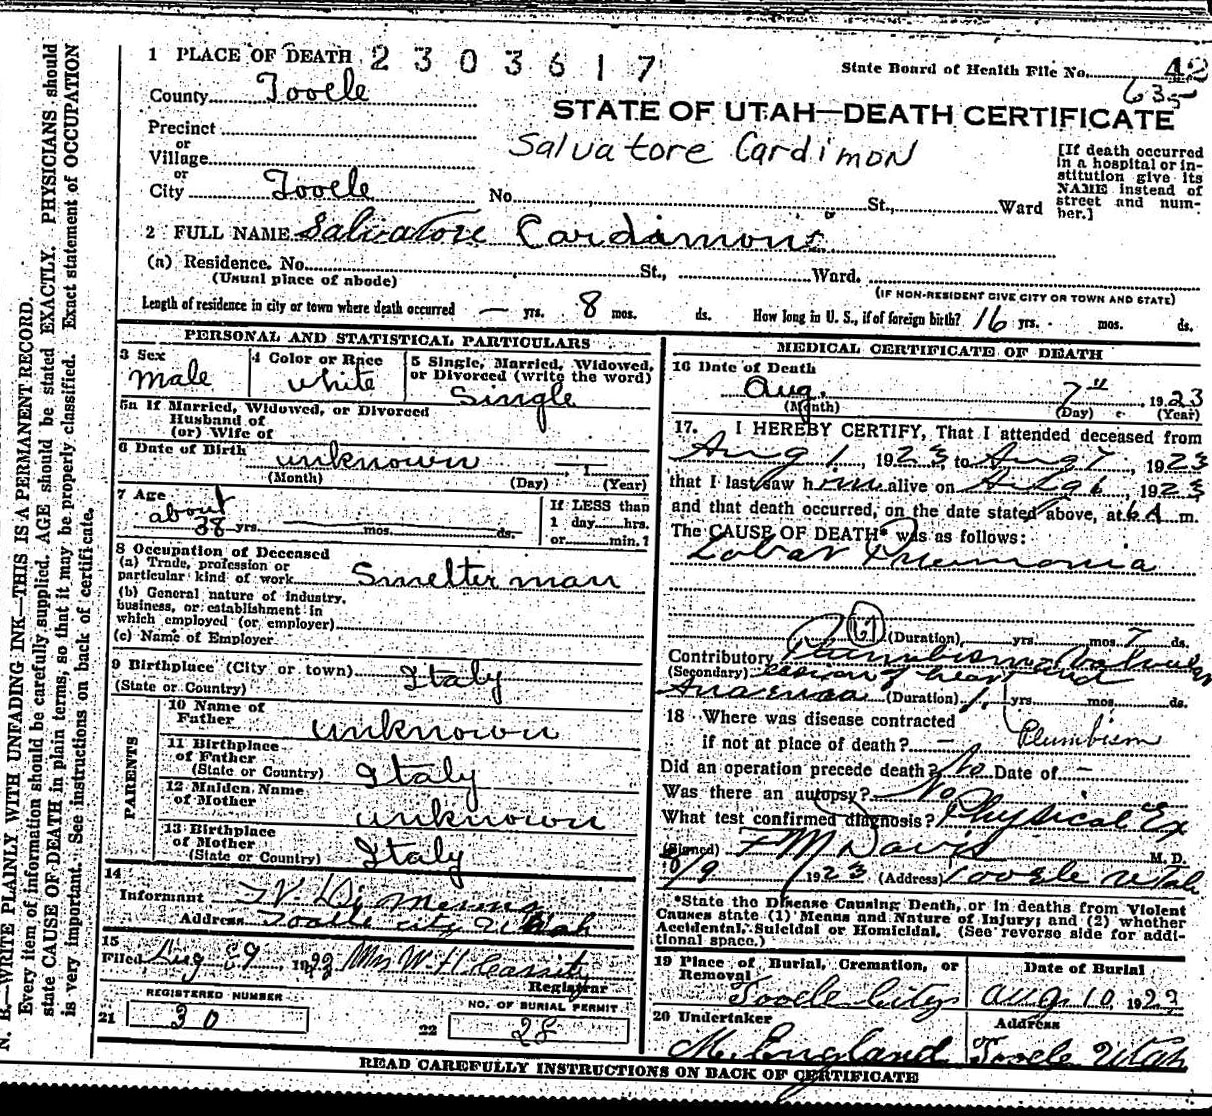 1 PLACE OF DEATH 2303617
State Board of Health File No. 42
County Tooele
635
STATE OF UTAH—DEATH CERTIFICATE
Precinct
or
Village
Salvatore Cardimon
[If death occurred in a hospital or institution give its NAME instead of street and number.]
or
City Tooele No. St., Ward
2 FULL NAME Salvatore Cardimon
(a) Residence. No. St., Ward.
(Usual place of abode)
(IF NON-RESIDENT GIVE CITY OR TOWN AND STATE)
Length of residence in city or town where death occurred — yrs. 8 mos. ds. How long in U. S., if of foreign birth? 16 yrs. mos. ds.
PERSONAL AND STATISTICAL PARTICULARS
3 Sex
male
4 Color or Race
white
5 Single, Married, Widowed, or Divorced (write the word)
Single
5a If Married, Widowed, or Divorced
Husband of
(or) Wife of
6 Date of Birth unknown
(Month) (Day) (Year)
7 Age
about
38 yrs. mos. ds.
If LESS than
1 day hrs.
or min.?
8 Occupation of Deceased
(a) Trade, profession or
particular kind of work Smelter man
(b) General nature of industry,
business, or establishment in
which employed (or employer)
(c) Name of Employer
9 Birthplace (City or town) Italy
(State or Country)
PARENTS
10 Name of
Father unknown
11 Birthplace
of Father
(State or Country) Italy
12 Maiden Name
of Mother unknown
13 Birthplace
of Mother
(State or Country) Italy
14
Informant
Address Tooele city Utah
15
Filed Aug 9 1923 Mrs W. H. Cassity
Registrar
REGISTERED NUMBER
21 30
NO. OF BURIAL PERMIT
22 28
MEDICAL CERTIFICATE OF DEATH
16 Date of Death
Aug. 7" 1923
(Month) (Day) (Year)
17. I HEREBY CERTIFY, That I attended deceased from
Aug 1, 1923, to Aug 7, 1923
that I last saw him alive on Aug 6, 1923
and that death occurred, on the date stated above, at 6 A m.
The CAUSE OF DEATH* was as follows:
Lobar Pneumonia
(Duration) yrs. mos. 7 ds.
Contributory Plumbism, Valvular
(Secondary) lesion of heart and
Anaemia (Duration) 1 yrs. mos. ds.
18 Where was disease contracted
if not at place of death? — Plumbism
Did an operation precede death? No Date of —
Was there an autopsy? No
What test confirmed diagnosis? Physical Ex
(Signed) F M Davis M. D.
8/9 1923 (Address) Tooele Utah
*State the Disease Causing Death, or in deaths from Violent
Causes state (1) Means and Nature of Injury; and (2) whether
Accidental, Suicidal or Homicidal. (See reverse side for addi-
tional space.)
19 Place of Burial, Cremation, or
Removal
Tooele City
Date of Burial
Aug 10, 1923
20 Undertaker
M. England
Address
Tooele Utah
READ CAREFULLY INSTRUCTIONS ON BACK OF CERTIFICATE
N. B.—WRITE PLAINLY WITH UNFADING INK—THIS IS A PERMANENT RECORD.
Every item of information should be carefully supplied. AGE should be stated EXACTLY. PHYSICIANS should
state CAUSE OF DEATH in plain terms, so that it may be properly classified. Exact statement of OCCUPATION
is very important. See instructions on back of certificate.